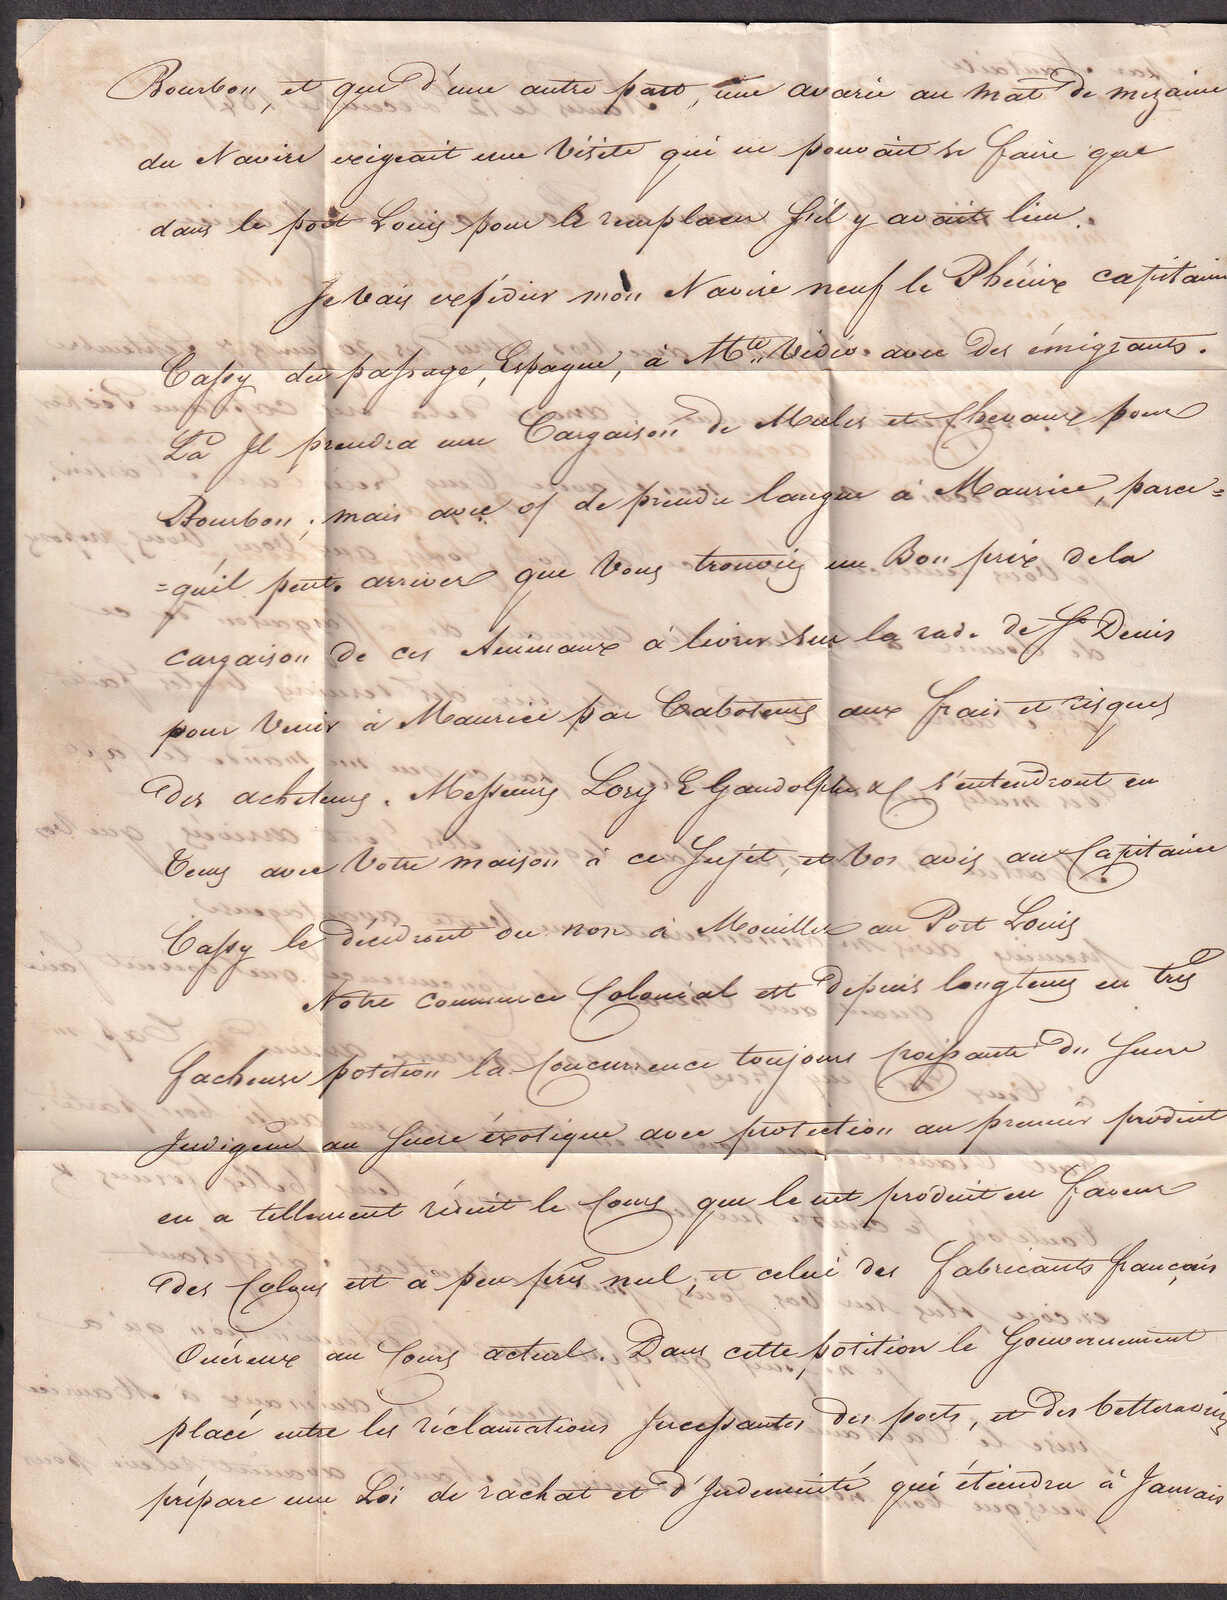 Bourbon, et que d'une autre part, une avarie au mât de mizaine
du Navire exigeait une Visite qui ne pouvait se faire que
dans le port Louis pour le remplacer s'il y avait lieu.
Je Vais expédier mon Navire neuf le Phénix capitaine
Cassy du passage, Espagne, à Mte Vidéo avec des émigrants.
La Il prendra une Cargaison de Mules et Chevaux pour
Bourbon, mais avec of de prendre langue à Maurice, parce=
=qu'il peut arriver que Vous trouviez un Bon prix de la
cargaison de ces Animaux à livrer sur la rade de St Denis
pour Venir à Maurice par Caboteurs aux frais et risques
des acheteurs. Messieurs Lory E Gandolphe & C s'entendront en
tems avec Votre maison à ce Sujet, et Vos avis au Capitaine
Cassy le décideront ou non à Mouiller au Port Louis
Notre commerce Colonial est depuis longtems en très
facheuse position la Concurrence toujours croissante du Sucre
Indigène au Sucre éxotique avec protection au premier produit
en a tellement réduit le Cours que le net produit en faveur
des Colons est a peu près nul, et celui des fabricants français
Onéreux au Cours actuel. Dans cette position le Gouvernement
placé entre les réclamations Incessantes des ports, et des betteraviers
prépare une Loi de rachat et d'Indemnité qui éteindra à Jamais